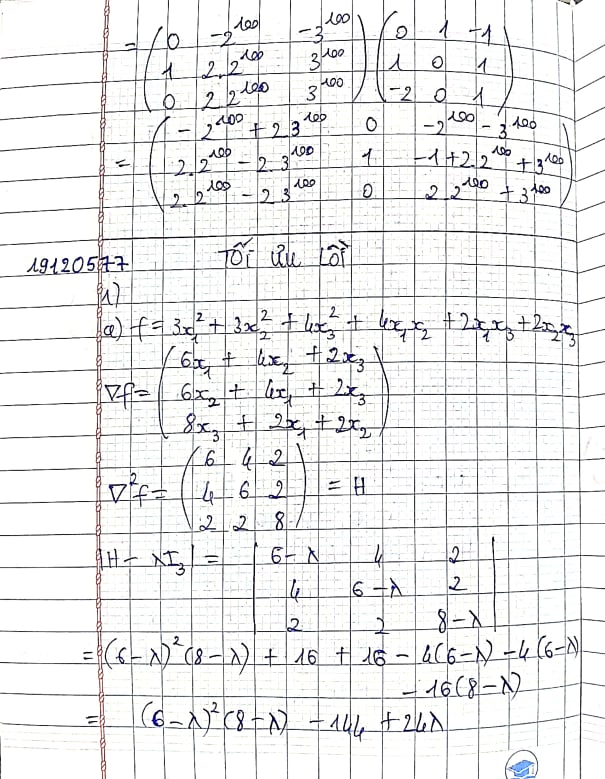 = ( 0 -2^100 -3^100 ) ( 0 1 -1 )
( 1 2.2^100 3^100 ) ( 1 0 1 )
( 0 2.2^100 3^100 ) ( -2 0 1 )
( -2^100 + 2.3^100 0 -2^100 - 3^100 )
= ( 2.2^100 - 2.3^100 1 -1 + 2.2^100 + 3^100 )
( 2.2^100 - 2.3^100 0 2.2^100 + 3^100 )
19120577 Tối ưu lồi
1)
a) f = 3x₁² + 3x₂² + 4x₃² + 4x₁x₂ + 2x₁x₃ + 2x₂x₃
( 6x₁ + 4x₂ + 2x₃ )
∇f = ( 6x₂ + 4x₁ + 2x₃ )
( 8x₃ + 2x₁ + 2x₂ )
( 6 4 2 )
∇²f = ( 4 6 2 ) = H
( 2 2 8 )
|H - λI₃| = | 6-λ 4 2 |
| 4 6-λ 2 |
| 2 2 8-λ |
= (6-λ)²(8-λ) + 16 + 16 - 4(6-λ) - 4(6-λ)
- 16(8-λ)
= (6-λ)²(8-λ) - 144 + 24λ